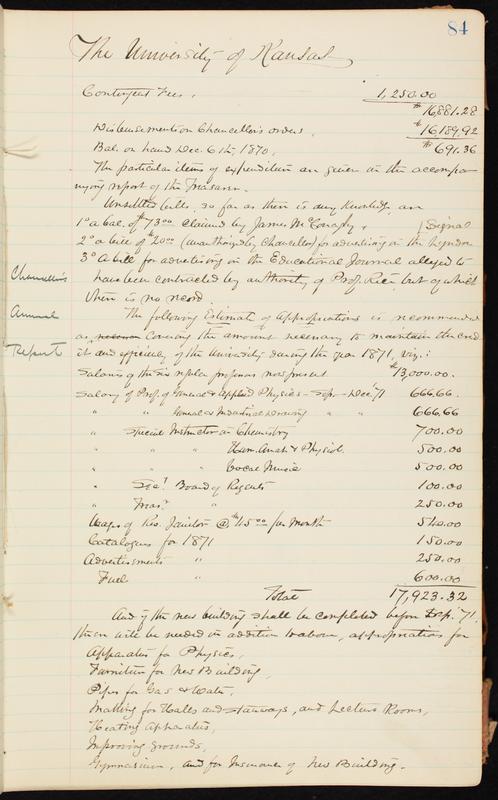 84
The University of Kansas
Contingent Fees. 1,250.00
$16,881.28
Disbursements on Chancellor's orders. $16189.92
Bal. on hand Dec. 6th, 1870. $691.36
The particular items of expenditure are given in the accompa-
nying report of the Treasurer.
Unsettled bills, so far as there is any knowledge, are
1° a bal. of $73.00 claimed by James McConaghy,
2° a bill of $20.00 (authorized by Chancellor) for advertising in the Lyndon [Signal
3° A bill for advertising in the Educational Journal alleged to
have been contracted by authority of Prof. Rice but of which
there is no record.
Chancellor's
Annual
Report
The following Estimate of Appropriations is recommended
as covering the amount necessary to maintain the cred-
it and efficiency of the University during the year 1871, viz.:
Salaries of the six regular professors now present $13,000.00.
Salary of Prof. of General & Applied Physics - Sep. - Dec. '71 666.66.
" " General & Industrial Drawing " " 666.66
" Special Instructor in Chemistry 700.00
" " " Hum. Anat. & Physiol. 500.00
" " " Vocal Music 500.00
" Sec'y. Board of Regents 100.00
" Treas. " 250.00
Wages of Res. Janitor @ $45.00 per Month 540.00
Catalogues for 1871 150.00
Advertisements " 250.00
Fuel " 600.00
Total 17,923.32
And if the new building shall be completed before Sep. '71,
there will be needed in addition to above, appropriations for
Apparatus for Physics,
Furniture for New Building,
Pipes for Gas & Water,
Matting for Halls and stairways, and Lecture Rooms,
Heating Apparatus,
Improving grounds,
Gymnasium, and for Insurance of New Building.